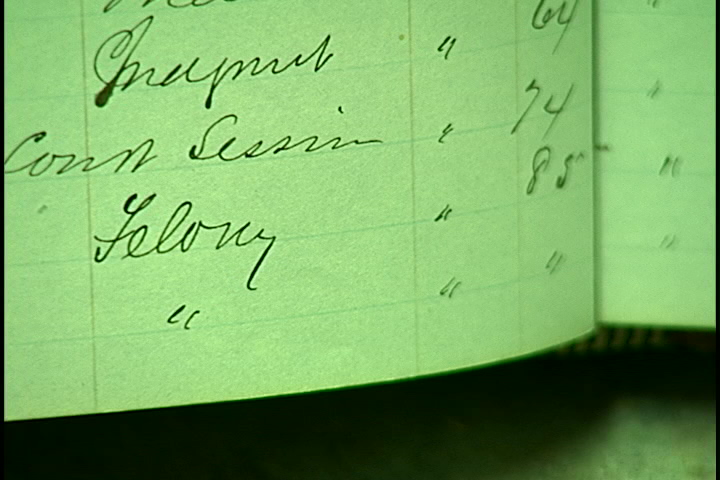 64 "
Judgment " 74 "
Court Session " 85 "
Felony " " "
" "